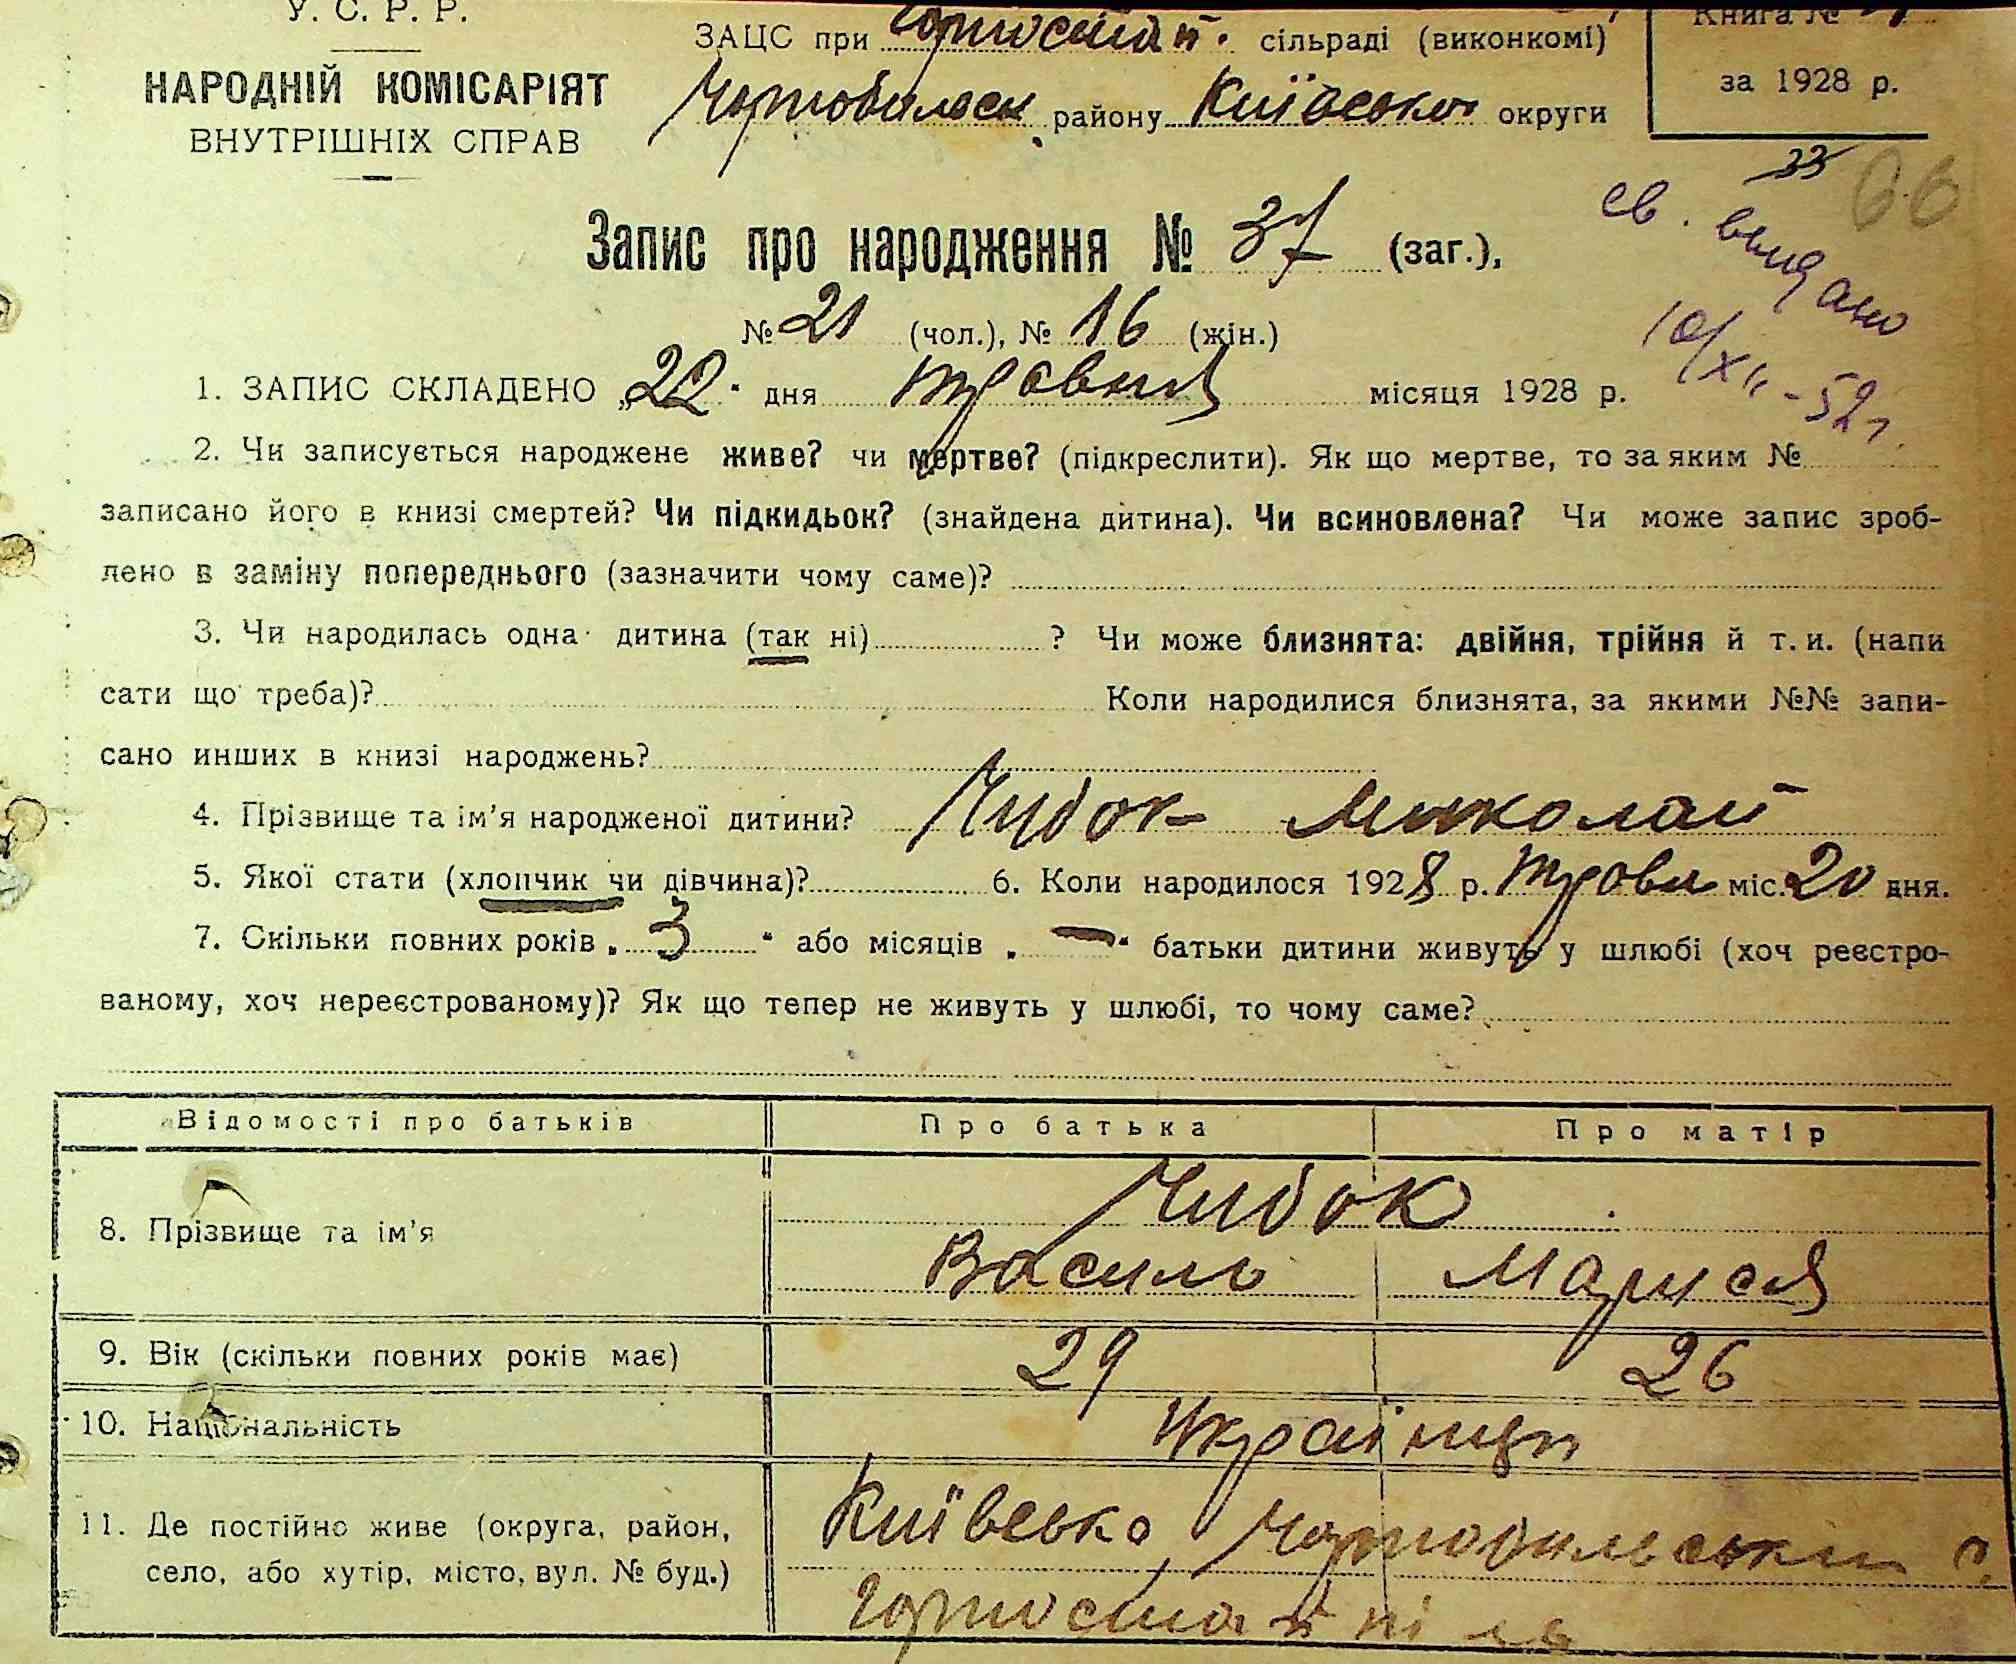 У. С. Р. Р.
НАРОДНІЙ КОМІСАРІЯТ
ВНУТРІШНІХ СПРАВ
ЗАЦС при Горностай. сільраді (виконкомі)
Чорнобильськ. району Київської округи
Книга №
за 1928 р.
33
66
Запис про народження № 37 (заг.),
№ 21 (чол.), № 16 (жін.)
св. выдано
10/XII-52г.
1. ЗАПИС СКЛАДЕНО „22" дня травня місяця 1928 р.
2. Чи записується народжене живе? чи мертве? (підкреслити). Як що мертве, то за яким №
записано його в книзі смертей? Чи підкидьок? (знайдена дитина). Чи всиновлена? Чи може запис зроб-
лено в заміну попереднього (зазначити чому саме)?
3. Чи народилась одна дитина (так ні) ? Чи може близнята: двійня, трійня й т. и. (напи
сати що треба)? Коли народилися близнята, за якими №№ запи-
сано инших в книзі народжень?
4. Прізвище та ім'я народженої дитини? Чубок Миколай
5. Якої стати (хлопчик чи дівчина)? 6. Коли народилося 1928 р. травн міс. 20 дня.
7. Скільки повних років „ 3 " або місяців „ — " батьки дитини живуть у шлюбі (хоч реєстро-
ваному, хоч нереєстрованому)? Як що тепер не живуть у шлюбі, то чому саме?
Відомості про батьків Про батька Про матір
8. Прізвище та ім'я Чубок
Василь Марися
9. Вік (скільки повних років має) 29 26
10. Національність Українці
11. Де постійно живе (округа, район, Київсько, Чорнобильськи
село, або хутір, місто, вул. № буд.) Горностайпіль